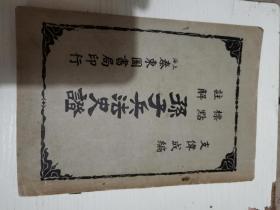 標點
註解
孫子兵法史證
支偉成編
上海
泰東圖書局印行